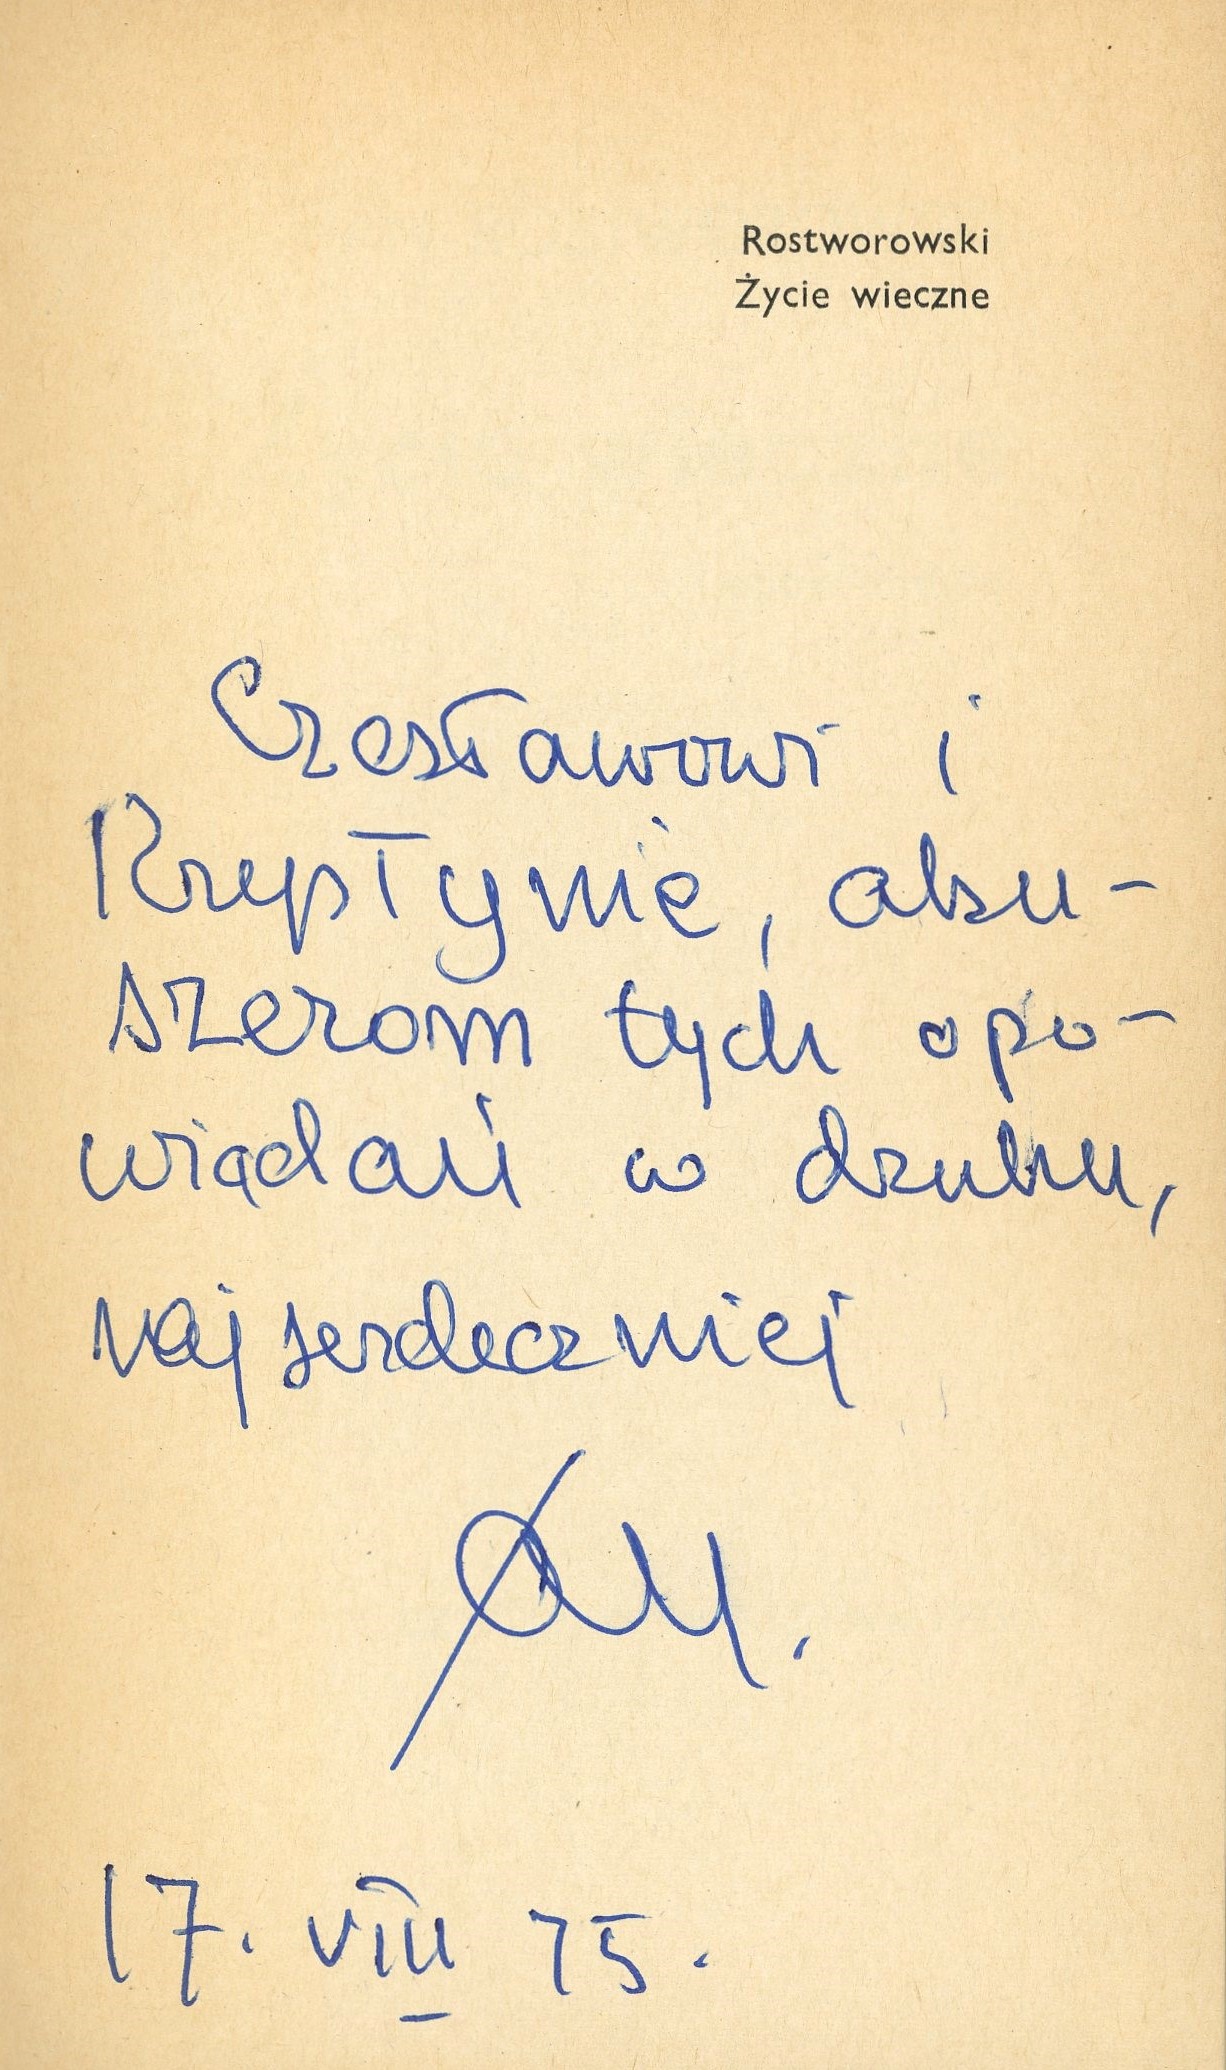 Rostworowski
Życie wieczne
Czesławowi i
Krystynie, aku-
szerom tych opo-
wiadań w druku,
najserdeczniej
17. VIII 75.